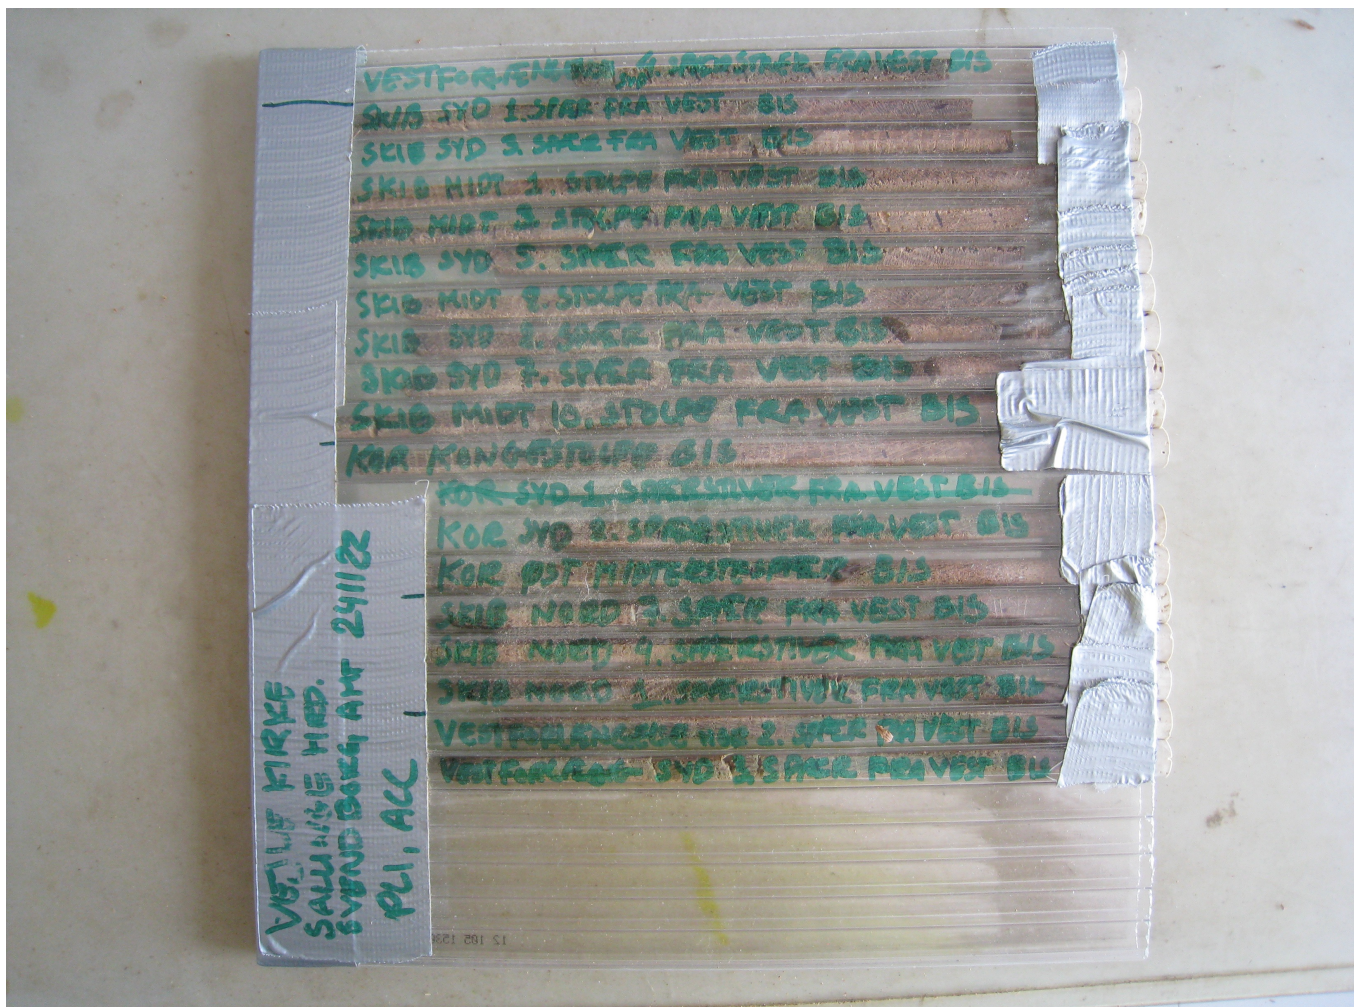 VESTFORLÆNG 4. SPÆRSTIVER FRA VEST BIS
SKIB SYD 1. SPÆR FRA VEST BIS
SKIB SYD 3. SPÆR FRA VEST BIS
SKIB MIDT 1. STOLPE FRA VEST BIS
SKIB MIDT 3. STOLPE FRA VEST BIS
SKIB SYD 5. SPÆR FRA VEST BIS
SKIB MIDT STOLPE FRA VEST BIS
SKIB SYD SPÆR FRA VEST BIS
SKIB SYD 7. SPÆR FRA VEST BIS
SKIB MIDT 10. STOLPE FRA VEST BIS
KOR KONGESTOLPE BIS
KOR SYD 1. SPÆRSTIVER FRA VEST BIS
KOR SYD 2. SPÆRSTIVER FRA VEST BIS
KOR ØST MIDTERSTRÆBER BIS
SKIB NORD 7. SPÆR FRA VEST BIS
SKIB NORD 4. SPÆRSTIVER FRA VEST BIS
SKIB NORD 1. SPÆRSTIVER FRA VEST BIS
VESTFORLÆNGELSE 2. SPÆR FRA VEST BIS
VESTFORLÆNG SYD SPÆR FRA VEST BIS
VEJLE KIRKE
SALLINGE HRD.
SVENDBORG AMT 241122
PLI, ACC
12 105 153